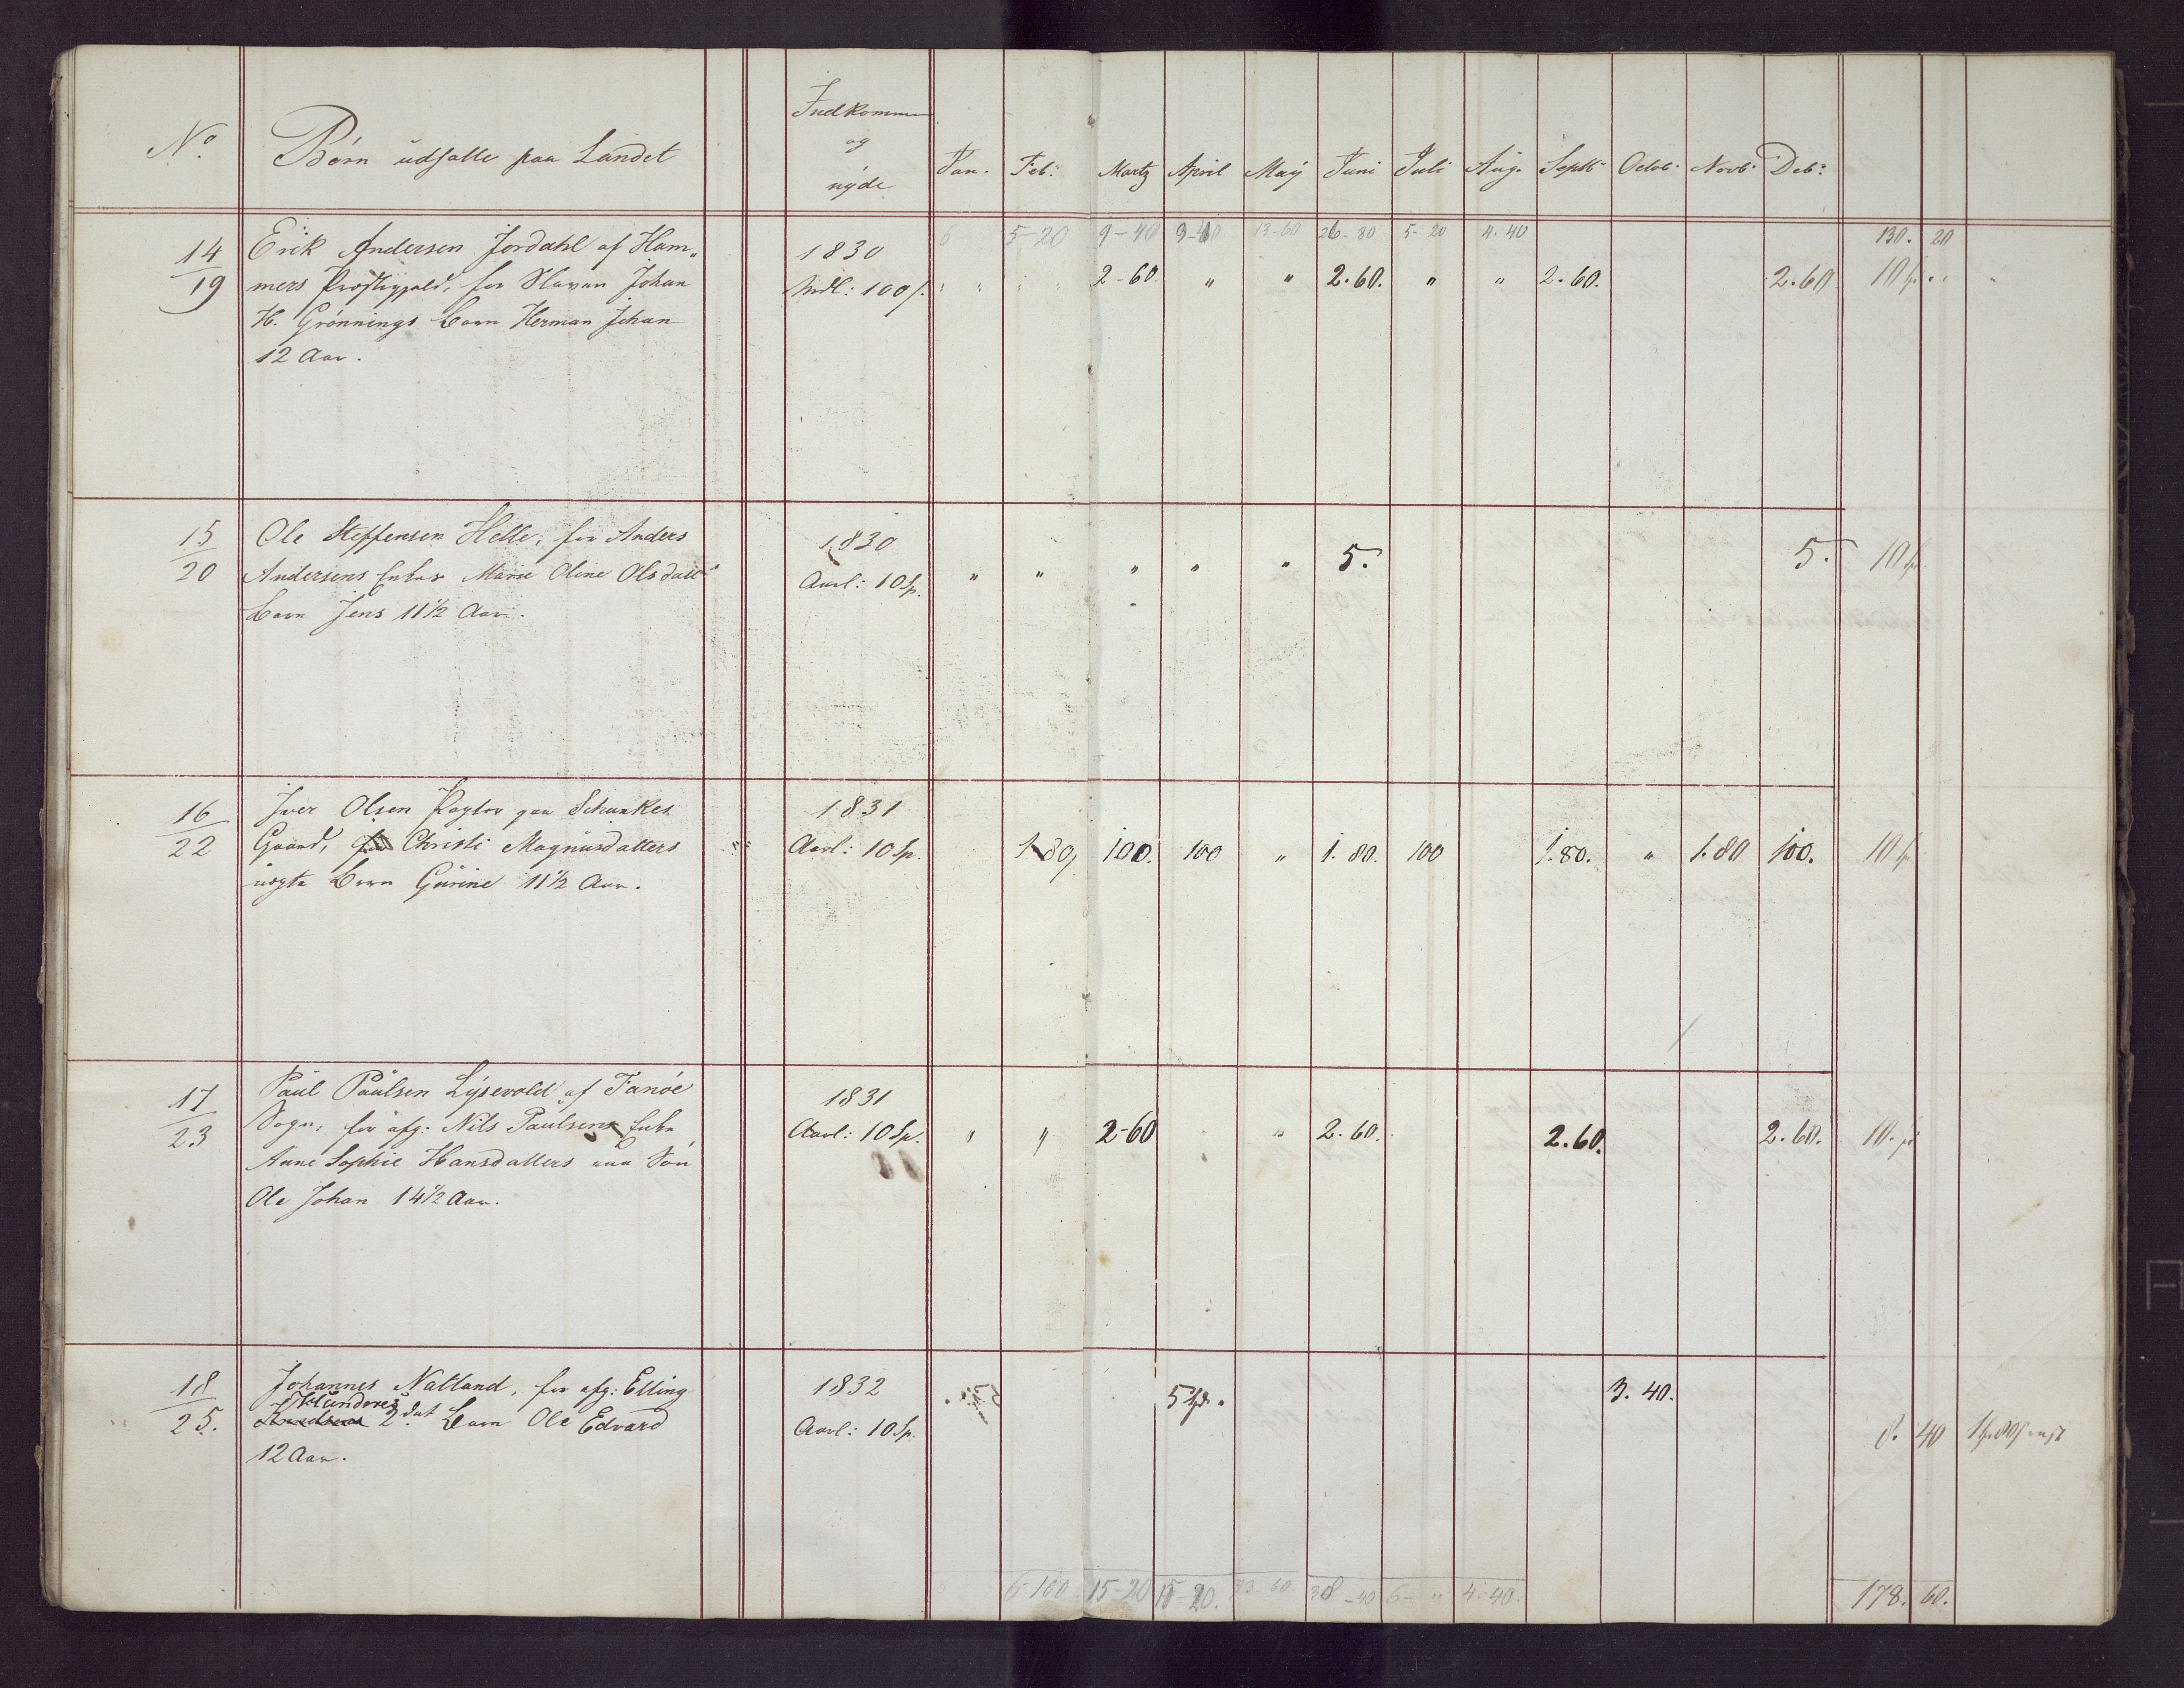 No. Børn udsatte paa Landet Indkommen og nyde Jan. Feb: Martz April May Juni Juli Aug. Septb. Octob. Novb. Deb:
5-20 9-40 9-40 13-60 26-80 5-20 4.40 130. 20
14/19 Erik Andersen Jordahl af Ham„
mers Præstegjæld, for Slaven Johan
H. Grønnings Barn Herman Johan
12 Aar.
1830
Mdl: 100 s. " " " " 2-60 " " 2.60. " " 2.60. 2.60 10 sp. " "
15/20 Ole Steffensen Helle, for Anders
Andersens Enkes Marie Oline Olsdatt
Barn Jens 11 1/2 Aar.
1830
Aarl: 10 Sp. " " " " " 5. 5. 10 sp
16/22 Iver Olsen Pagter paa Schunkes
Gaard, for Christi Magnusdatters
uægte Barn Gurine 11 1/2 Aar.
1831
Aarl: 10 Sp. 1.80, 100. 100 " 1.80. 100 1.80. " 1.80 100. 10 sp
17/23 Paul Paulsen Lysevold af Fanøe
Sogn, for afg: Nils Paulsens Enke
Anne Sophie Hansdatters Søn
Ole Johan 14 1/2 Aar.
1831
Aarl: 10 Sp. " " 2-60 " 2.60. 2.60. 2.60. 10. sp
18/25. Johannes Natland, for afg: Elling
Aklunderes
2det Barn Ole Edvard
12 Aar.
1832
Aarl: 10 Sp. 5 sp. 3.40. 8. 40
6-100 15-20 15-20. 13-60. 38-40 6-" 4.40. 178. 60.